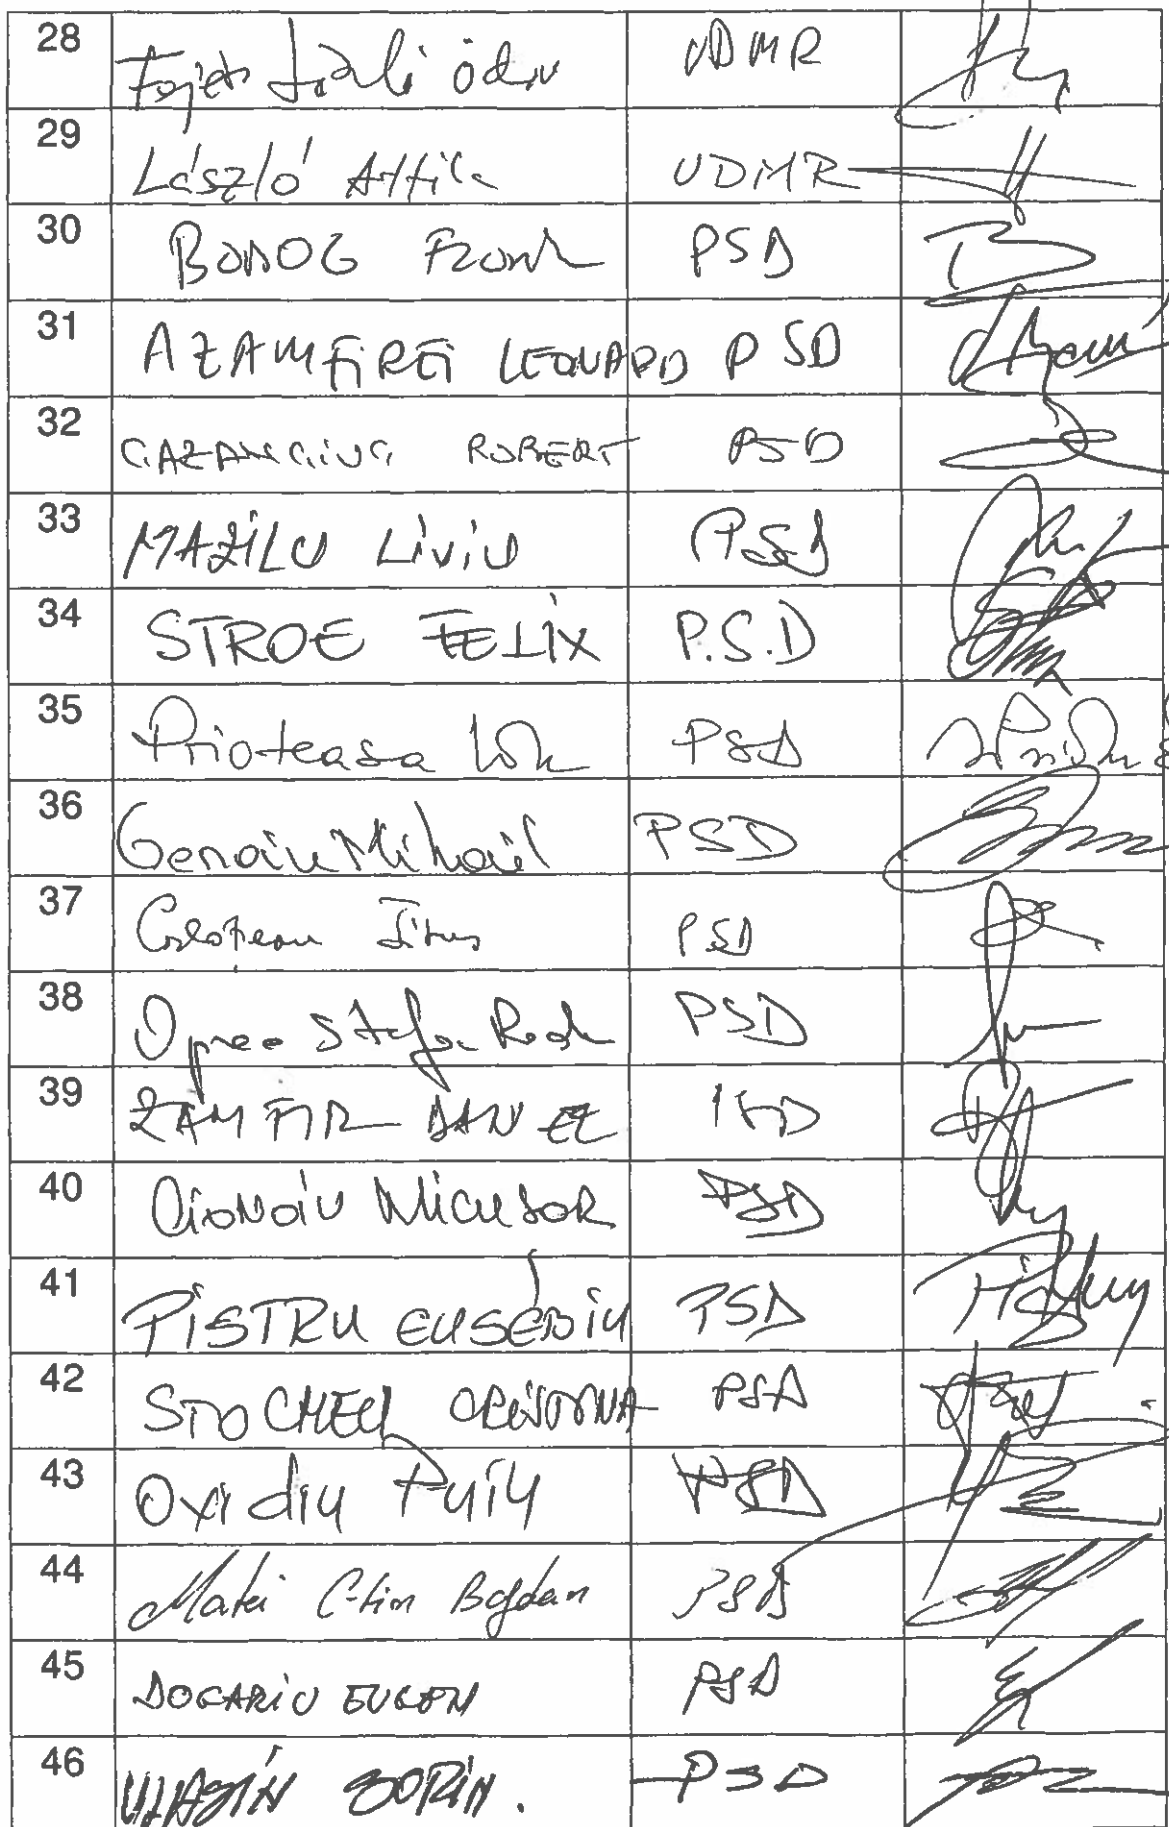 28 Fejér László Ödön UDMR
29 László Attila UDMR
30 BODOG PSD
31 AZAMFIREI LEONARD PSD
32 CAZANCIUC ROBERT PSD
33 MAZILU LIVIU PSD
34 STROE FELIX P.S.D
35 Prioteasa Ion PSD
36 Genoiu Mihail PSD
37 Corlățean Titus PSD
38 Oprea Radu PSD
39 ZAMFIR DANIEL PSD
40 CIONOIU NICUSOR PSD
41 PISTRU EUSEBIU PSD
42 STOCHECI CRISTINA PSD
43 Ovidiu Puiu PSD
44 Matei C-tin Bogdan PSD
45 DOGARIU EUGEN PSD
46 VLAȘIN SORIN. PSD